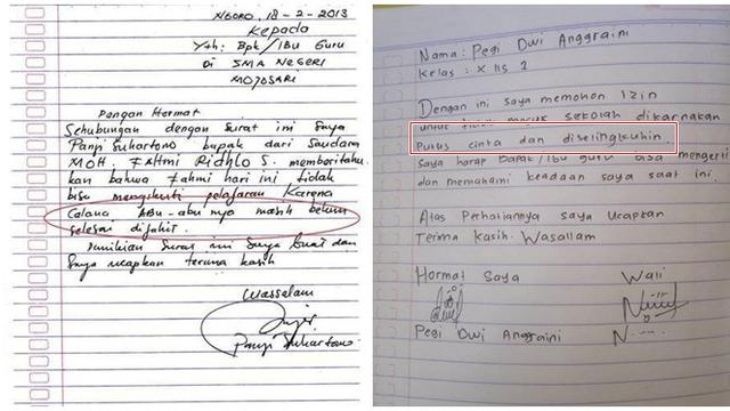 NGORO, 18 - 2 - 2013
Kepada
Yth: Bpk/Ibu Guru
Di SMA NEGERI
MOJOSARI
Dengan Hormat
Sehubungan dengan surat ini Saya
Panji Suhartono bapak dari Saudara
MOH. FAHmi Ridhlo S. memberitahu
kan bahwa Fahmi hari ini tidak
bisa mengikuti pelajaran Karena
Celana ABU-abu nya masih belum
selesai dijahit.
Demikian Surat ini Saya buat dan
Saya ucapkan terima kasih
Wassalam
Panji Suhartono
Nama : Pegi Dwi Anggraini
Kelas : X IIS 2
Dengan ini saya memohon izin
untuk tidak masuk sekolah dikarnakan
Putus cinta dan diselingkuhin.
Saya harap Bapak/Ibu guru bisa mengerti
dan memahami keadaan saya saat ini.
Atas Perhatiannya saya ucapkan
Terima kasih. Wasallam
Hormat Saya Wali
Pegi Dwi Anggraini